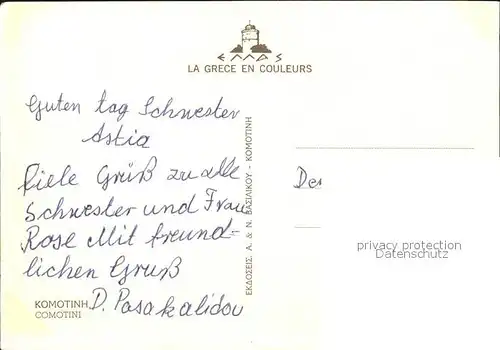 ΕΛΛΑΣ
LA GRECE EN COULEURS
Guten tag Schwester
Astia
Fiele Grüß zu alle
Schwester und Frau
Rose Mit freund-
lichen Gruß
D. Pasakalidou
ΚΟΜΟΤΙΝΗ
COMOTINI
ΕΚΔΟΣΕΙΣ Α. & Ν. ΒΑΣΙΛΙΚΟΥ - ΚΟΜΟΤΙΝΗ
Des
privacy protection
Datenschutz